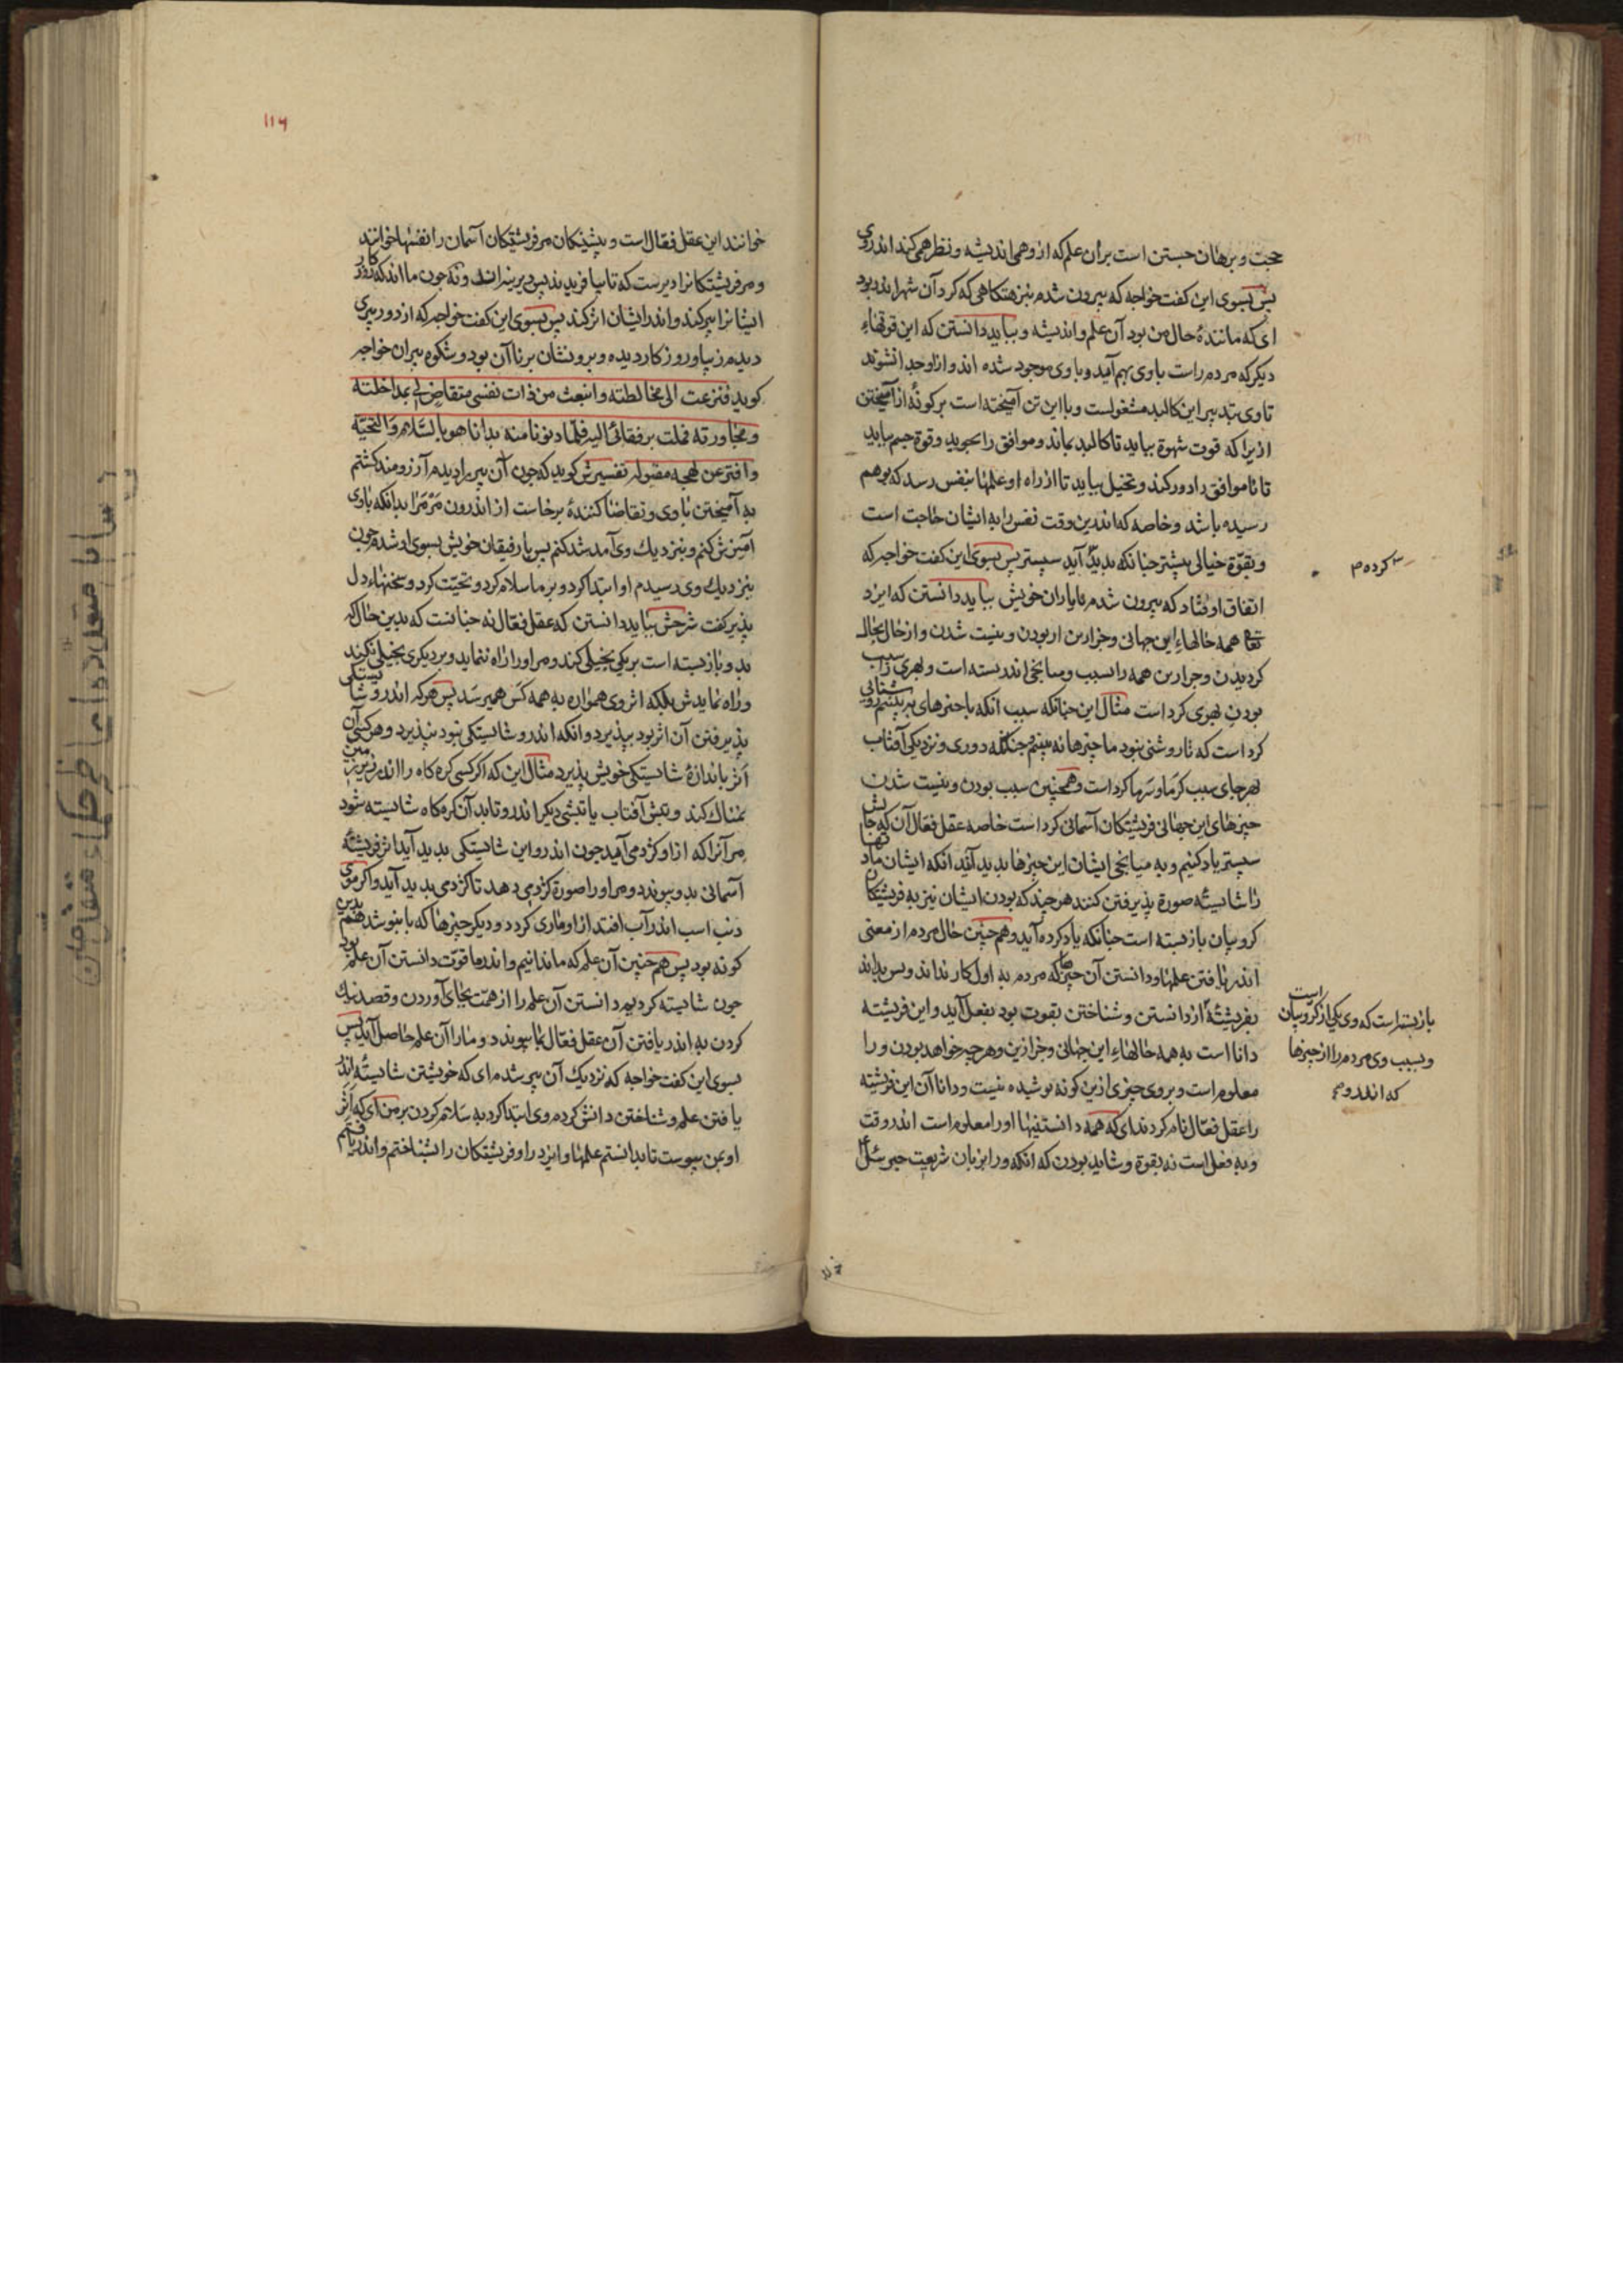 حجت و برهان جستن است بران علم که از وهمی اندیشه و نظر همی کند اندر وی
پس بسوی این کفت خواجه که بیرون شدم بنزهتکاهی که کرد آن شهر اندر بود
ای که مانندهٔ حال من بود آن علم و اندیشه و بباید دانستن که این قوتهاء
دیکر که مردم راست باوی بهم آمید و باوی موجود شده اند و از او جدا نشوند
تا وی بتدبیر این کالبد مشغولست و با این تن آمیخته است بر کونهٔ از آمیختن
ازیرا که قوت شهوة بباید تا کالبد بماند و موافق را بجوید و قوة خشم بباید
تا ناموافق را دور کند و تخیل بباید تا از راه او علمها بنفس رسد که بوهم
رسیده باشد و خاصه که اندرین وقت نفس را به ایشان حاجت است
و بقوّة خیالی بیشتر چنانکه بدید آید سپستر پس بسوی این کفت خواجه که
اتفاق اوفتاد که بیرون شدم با یاران خویش بباید دانستن که ایزد
تعالی همه حالهاء این جهانی و جزارین از بودن و نیست شدن و از حال بحال
کردیدن و جزارین همه را بسبب و میانجی اندر بسته است و هر چیزی را سبب
بودن چیزی کرد است مثال این چنانکه سبب آنکه ما چیزهای ببینیم روشنایی
کرد است که تا روشنی نبود ما چیزها نه بینیم و چنانکه دوری و نزدیکی آفتاب
بهر جای سبب کرما و سرما کرد است و همچنین سبب بودن و نیست شدن
چیزهای این جهانی فریشتکان آسمانی کرد است خاصه عقل فعّال آن که حالش
سپستر یاد کنیم و به میانجی ایشان این چیزها بدید آید آنکه ایشان مادتها
را شایستهٔ صورة پذیرفتن کنند هرچند که بودن ایشان نیز به فریشتکان
کروبیان بازبسته است چنانکه یاد کرده آید و هم چنین حال مردم از معنی
اندر یافتن علمها و دانستن آن چیزها که مردم به اول کار نداند و پس بداند
بفریشتهٔ از دانستن و شناختن بقوت بود بفعل آید و این فریشته
دانا است به همه حالهاء این جهانی و جزازین و هرچه خواهد بودن و را
معلوم است و بر وی چیزی ازین کونه پوشیده نیست و دانا آن این فریشته
را عقل فعّال نام کردند ای که همه دانستنیها او را معلوم است اندر وقت
و به فعل است نه بقوة و شاید بودن که آنکه ورا بزبان شریعت جبرئیل
کرده
بازبسته است که وی یکی از کروبیان است
و بسبب وی مردم را از چیزها
که اندر و
۱۱۶
خوانند این عقل فعّال است و پیشینکان مر فریشتکان آسمان را نفسها خوانند
و مر فریشتکانرا دیرست که تا بیافرید پس دیرینه اند و نه چون ما اند که روزکار
ایشانرا پیر کند و اندر ایشان اثر کند پس بسوی این کفت خواجه که از دور پیری
دیدم زیبا و روزکار دیده و برو نشان برناآن بود و شکوه پیران خواجه
کوید فنزعت الی مخالطته وانبعث من ذات نفسی متقاض لی بمداخلته
و مجاورته فملت برفقائی الیه فلما دنونا منه بدانا هو بالسّلام والتحیّه
وافتر عن لهجه مقبوله تفسیرش کوید که چون آن پیر را دیدم آرزومند کشتم
به آمیختن با وی و تقاضا کنندهٔ برخاست از اندرون مرمرا بدانکه باوی
آمیزش کنم و بنزدیک وی آمد شد کنم پس با رفیقان خویش بسوی او شدم چون
بنزدیک وی رسیدم او ابتدا کرد و بر ما سلام کرد و تحیّت کرد و سخنهاء دل
پذیر کفت شرحش بباید دانستن که عقل فعّال نه چنانست که بدین حال که
بدو بازبسته است بر یکی بخیلی کند و مر او را راه ننماید و بر دیکری بخیلی نکند
و راه نمایدش بلکه اثر وی همواره به همه کس همی رسد پس هرکه اندر و شایستکی
پذیرفتن آن اثر بود بپذیرد و آنکه اندر و شایستکی نبود نپذیرد و هرکسی آن
اثر باندازهٔ شایستکی خویش پذیرد مثال این که اکر کسی کره کاه را اندر زیر زمین
نمناک کند و تبش آفتاب یا تبشی دیکر اندر و تابد آن کره کاه شایسته شود
مر آنرا که از او کژدم آید چون اندر و این شایستکی بدید آید اثر فریشتهٔ
آسمانی بدو پیوندد و مر او را صورة کژدمی دهد تا کژدمی بدید آید و اکر موی
دنب اسب اندر آب افتد از او ماری کردد و دیکر چیزها که بپوسد هم بدین
کونه بود پس هم چنین آن علم که ما ندانیم و اندر ما قوّت دانستن آن علم بود
چون شایسته کردیم دانستن آن علم را از همّت بجای آوردن و قصد نیک
کردن به اندر یافتن آن عقل فعّال بما پیوندد و مارا آن علم حاصل آید پس
بسوی این کفت خواجه که نزدیک آن پیر شدم ای که خویشتن شایستهٔ اندر
یافتن علم و شناختن دانش کردم وی ابتدا کرد به سلام کردن بر من ای که اثر
او بمن پیوست تا بدانستم علمها و ایزد را و فریشتکان را بشناختم و اندر یافتم